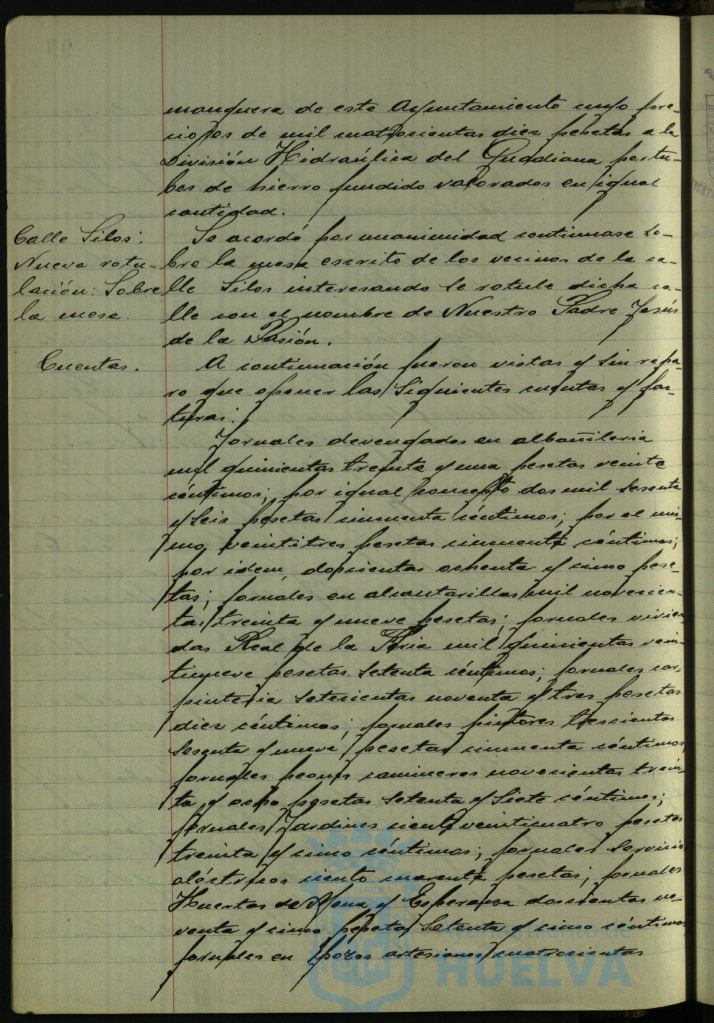 manguera de este Ayuntamiento cuyo pre-
cio es de mil cuatrocientas diez pesetas a la
División Hidraúlica del Guadiana por tu-
bos de hierro fundido valorados en igual
cantidad.
Calle Silos:
Nueva rotu-
lación: Sobre
la mesa.
Se acordó por unanimidad continuase so-
bre la mesa escrito de los vecinos de la ca-
lle Silos interesando se rotule dicha ca-
lle con el nombre de Nuestro Padre Jesús
de la Pasión.
Cuentas.
A continuación fueron vistas y sin repa-
ro que oponer las siguientes cuentas y fac-
turas:
Jornales devengados en albañilería
mil quinientas treinta y una pesetas veinte
céntimos; por igual concepto dos mil sesenta
y seis pesetas cincuenta céntimos; por el mis-
mo, veintitres pesetas cincuenta céntimos;
por idem, doscientas ochenta y cinco pese-
tas; jornales en alcantarillas mil novecien-
tas treinta y nueve pesetas; jornales vivien-
das Real de la Feria mil quinientas vein-
tinueve pesetas setenta céntimos; jornales car-
pintería setecientas noventa y tres pesetas
diez céntimos; jornales pintores trescientas
sesenta y nueve pesetas cincuenta céntimos,
jornales peones camineros novecientas trein-
ta y ocho pesetas setenta y siete céntimos;
jornales Jardines ciento veinticuatro pesetas
treinta y cinco céntimos; jornales servicios
eléctricos ciento cuarenta pesetas; jornales
Huertas de Mena y Esperanza doscientas no-
venta y cinco pesetas setenta y cinco céntimos
jornales en pozos artesianos cuatrocientas
HUELVA